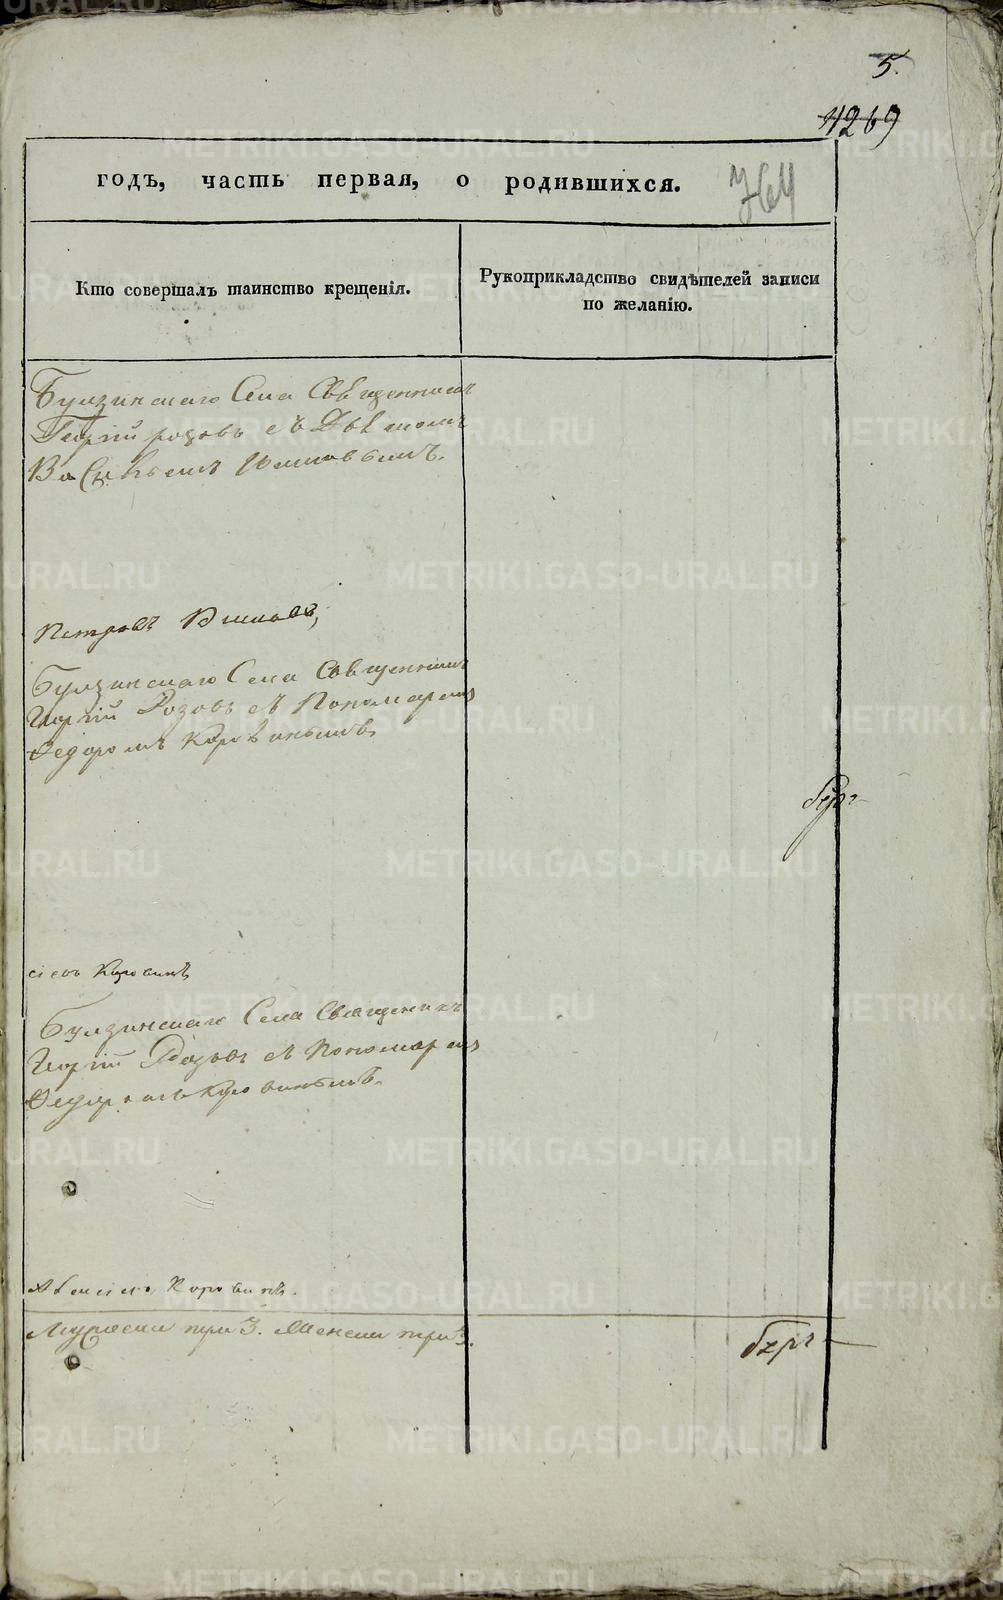 5.
4269
годъ, часть первая, о родившихся.
764
Кто совершалъ таинство крещенія.
Рукоприкладство свидѣтелей записи
по желанію.
Булзинскаго Села Священникъ
Георгій розовъ съ
Петровъ
Булзинскаго Села Священникъ
Георгій Розовъ съ Пономаремъ
Федоромъ Коровинымъ.
Коровинъ
Булзинскаго Села Священникъ
Георгій Розовъ съ Пономаремъ
Федоромъ Коровинымъ.
Коровинъ.
Мужеска три 3. Женска три 3.
METRIKI.GASO-URAL.RU